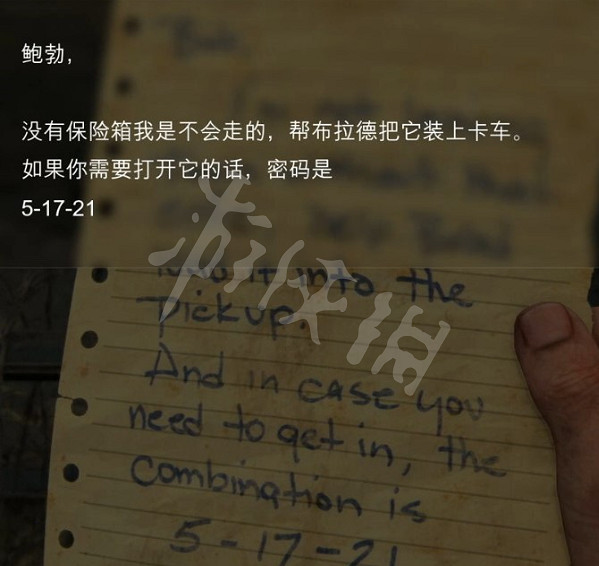 鲍勃，
没有保险箱我是不会走的，帮布拉德把它装上卡车。
如果你需要打开它的话，密码是
5-17-21
游侠网
into the
Pickup.
And in case you
need to get in, the
Combination is
5-17-21